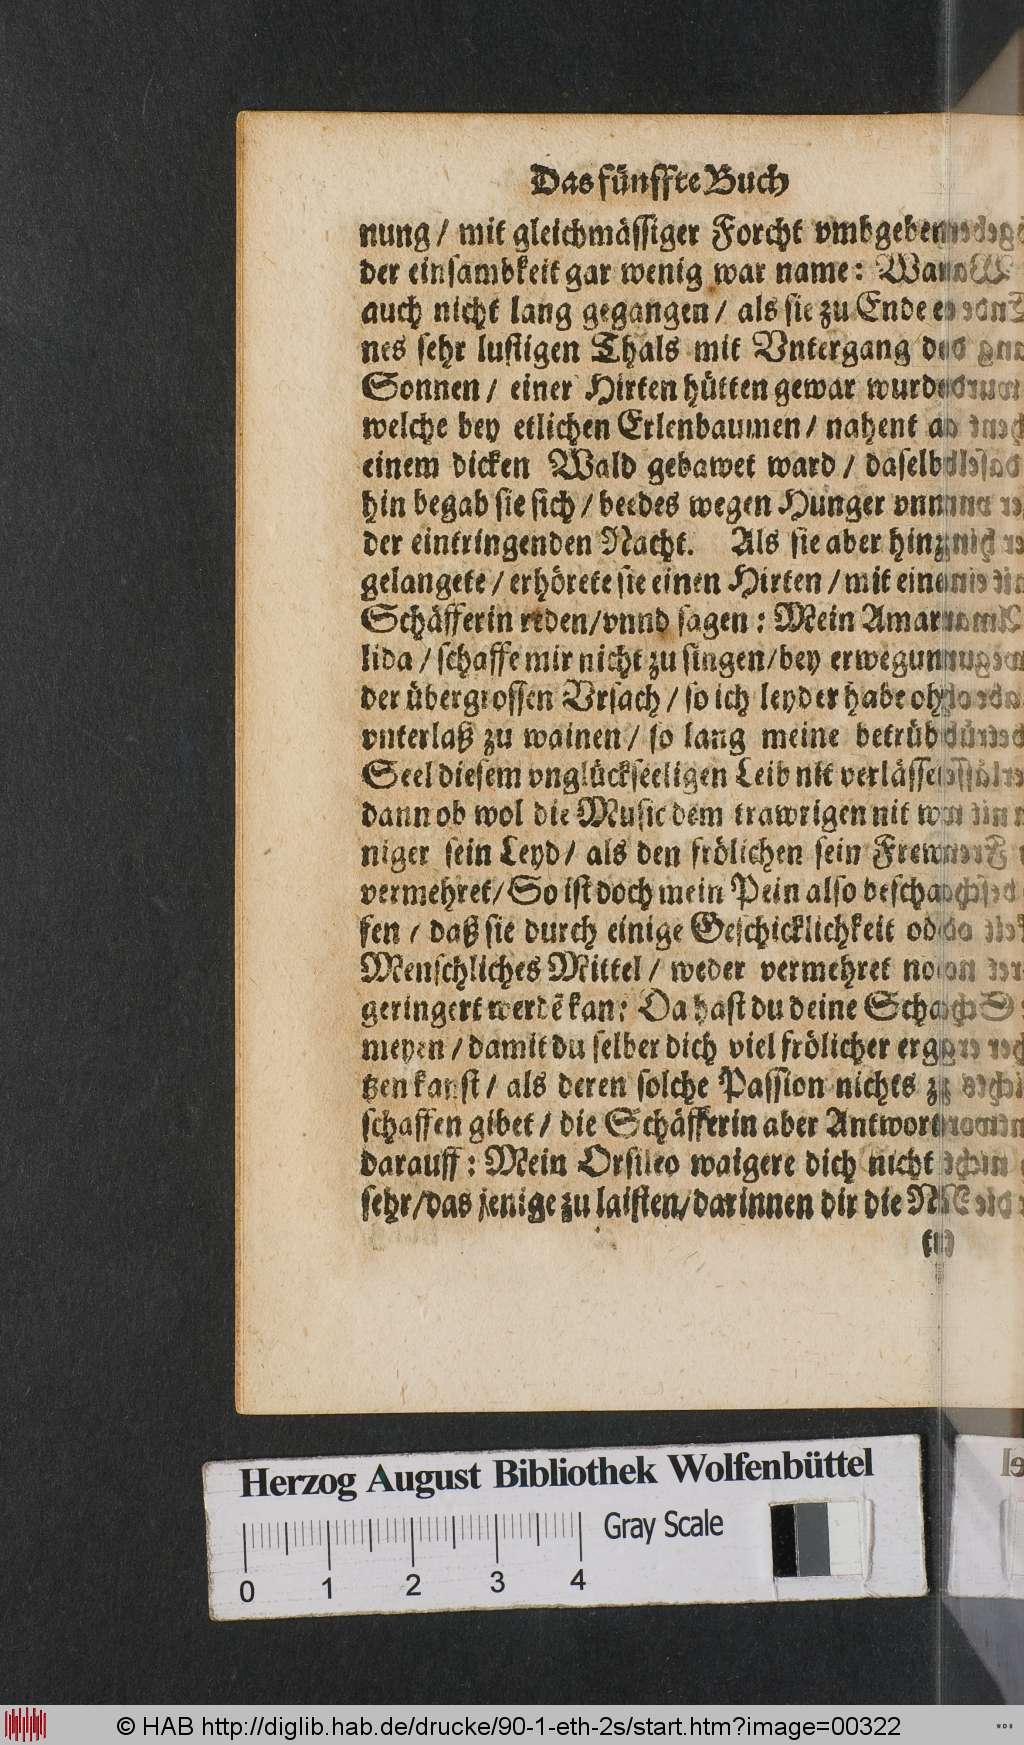 Das fünffte Buch
nung / mit gleichmässiger Forcht vmbgeben
der einsambkeit gar wenig war name: Wann
auch nicht lang gegangen / als sie zu Ende ei
nes sehr lustigen Thals mit Vntergang der
Sonnen / einer Hirten hütten gewar wurde
welche bey etlichen Erlenbaumen / nahent an
einem dicken Wald gebawet ward / daselbst
hin begab sie sich / beedes wegen Hunger vnnd
der eintringenden Nacht. Als sie aber hinzu
gelangete / erhörete sie einen Hirten / mit einer
Schäfferin reden/vnnd sagen : Mein Amar
lida / schaffe mir nicht zu singen/bey erwegung
der übergrossen Vrsach / so ich leyder habe ohn
vnterlaß zu wainen / so lang meine betrübte
Seel diesem vnglückseeligen Leib nit verlässet
dann ob wol die Music dem trawrigen nit we
niger sein Leyd / als den frölichen sein Frewd
vermehret/ So ist doch mein Pein also beschaf
fen / daß sie durch einige Geschicklichkeit oder
Menschliches Mittel / weder vermehret noch
geringert werdẽ kan: Da hast du deine Schal
meyen / damit du selber dich viel frölicher ergö
tzen kanst / als deren solche Passion nichts zu
schaffen gibet / die Schäfferin aber Antwort
darauff : Mein Orsileo waigere dich nicht so
sehr/das jenige zu laisten/darinnen dir die
Herzog August Bibliothek Wolfenbüttel
Gray Scale
0 1 2 3 4
© HAB http://diglib.hab.de/drucke/90-1-eth-2s/start.htm?image=00322